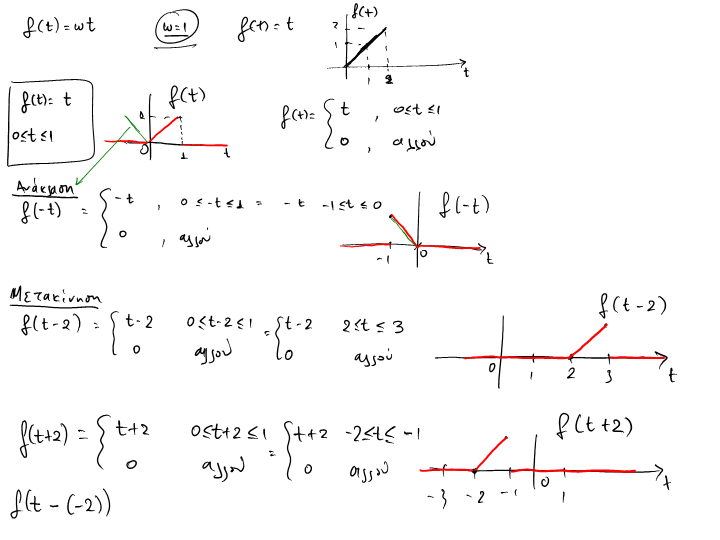 f(t)=wt   w=1   f(t)=t
f(t)
2
1
1 2 t
f(t)= t
0≤t≤1
f(t)
1
0 1 t
f(t)= { t , 0≤t≤1
0 , αλλού
Ανάκλαση
f(-t) = { -t , 0≤-t≤1 = -t -1≤t≤0
0 , αλλού
f(-t)
-1 0 t
Μετακίνηση
f(t-2) = { t-2 0≤t-2≤1 = { t-2 2≤t≤3
0 αλλού 0 αλλού
f(t-2)
0 1 2 3 t
f(t+2) = { t+2 0≤t+2≤1 = { t+2 -2≤t≤-1
0 αλλού 0 αλλού
f(t+2)
-3 -2 -1 0 1 t
f(t-(-2))